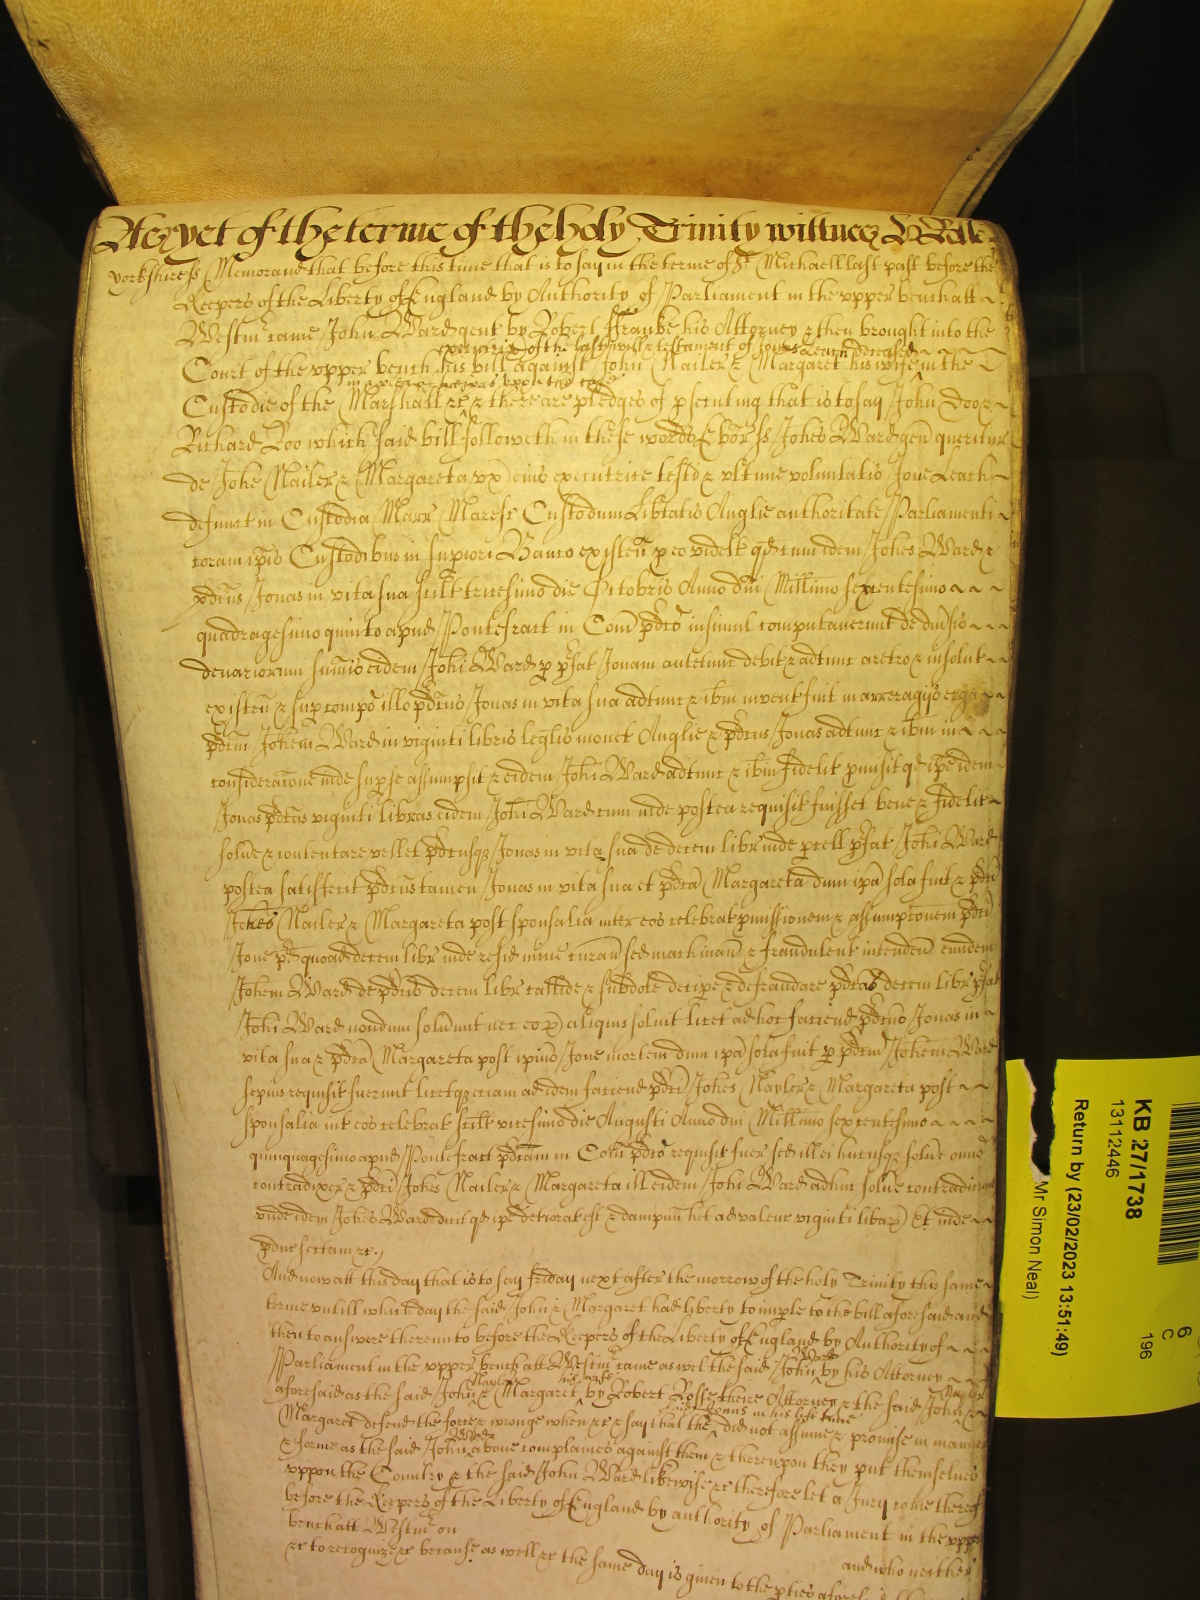 As yet of the terme of the holy Trinity wittnes H Rolle
Yorkshire ss Memorand that before this time that is to say in the terme of St Michaell last past before the
Keepers of the Liberty of England by Authority of Parliament in the upper bench att
Westmr came John Ward gent by Robert Franke his Attorney & then brought into the
executrix of the last will & testament of Jonas Leach deceased
Court of the upper bench his bill against John Nailer & Margaret his wife in the
in a plea of trespas upon the case
Custodie of the Marshall &c & there are pledges of pscuting that is to say John Doo &
Richard Roo which said bill followeth in these words Ebor ss Johes Ward gen queritur
de Johe Nailer & Margareta ux eius executrice testi & ultime voluntatis Jone Leach
defunct in Custodia Marr Maresc Custodum Libtatis Anglie authoritate Parliamenti
coram ipis Custodibus in supiori Banco existen p eo videlt qd cum idem Johes Ward &
pdcus Jonas in vita sua scilt tricesimo die Octobris Anno dni Millimo sexcentesimo
quadragesimo quinto apud Pontefract in Com pdco insimul computaverunt de divsis
denariorum summis eidem Johi Ward p pfat Jonam antetunc debit & adtunc aretro & insolut
existen & sup compo illo pdcus Jonas in vita sua adtunc & ibm invent fuit in arreragiis erga
pdcum Johem Ward in viginti libris leglis monet Anglie & pdcus Jonas adtunc & ibm in
consideracone inde sup se assumpsit & eidem Johi Ward adtunc & ibm fidelit pmisit qd ipe idem
Jonas pdcas viginti libras eidem Johi Ward cum inde postea requisit fuisset bene & fidelit
solve & contentare vellet pdcusq Jonas in vita sua de decem libr inde pcell pfat Johi Ward
postea satisfecit pdcus tamen Jonas in vita sua et pdca Margareta dum ipa sola fuit & pdci
Johes Nailer & Margareta post sponsalia inter eos celebrat pmissionem & assumpconem pdci
Jone pd quoad decem libr inde resid minime curan sed machinan & fraudulent intenden eundem
Johem Ward de pdcis decem libr callide & subdole decipe & defraudare pdcas decem libr pfat
Johi Ward nondum solverunt nec eo aliquis solvit licet ad hoc faciend pdcus Jonas in
vita sua & pdca Margareta post ipius Jone mortem dum ipa sola fuit p pdcum Johem Ward
sepius requisit fuerunt licetq eciam ad idem faciend pdci Johes Nayler & Margareta post
sponsalia int eos celebrat scilt vicesimo die Augusti Anno dni Millimo sexcentesimo
quinquagesimo apud Pontefract pdcam in Com pdco requisit fuer sed ill ei hucusq solve omno
contradixer & pdci Johes Nailer & Margareta ill eidem Johi Ward adhuc solve contradicunt
unde idem Johes Ward dicit qd ipe deteriorat est & dampnu het ad valenc viginti libar Et inde
pduc sectam &c
And now att this day that is to say Friday next after the morrow of the holy Trinity this same
terme untill which day the said John & Margaret had liberty to imple to the bill aforesaid and
then to answere thereunto before the Keepers of the Liberty of England by Authority of
Ward
Parliament in the upper bench att Westmr came as wel the said John by his Attorney
Nayler his wife Nayler
aforesaid as the said John & Margarit by Robert Rosse theire Attorney & the said John &
said Jonas in his life time
Margaret defend the force & wronge when &c & say that the did not assume & promise in manner
Ward
& forme as the said John above complaines against them & thereupon they put themselves
uppon the Country & the said John Ward likewise &c therefore let a Jury come thereof
before the Keepers of the Liberty of England by authority of Parliament in the upper
bench att Westmr on and who neither
&c to recognize &c because as well &c the same day is given to the pties aforesaid
KB 27/1738
13112446
Return by (23/02/2023 13:51:49)
Mr Simon Neal)
6
C
196